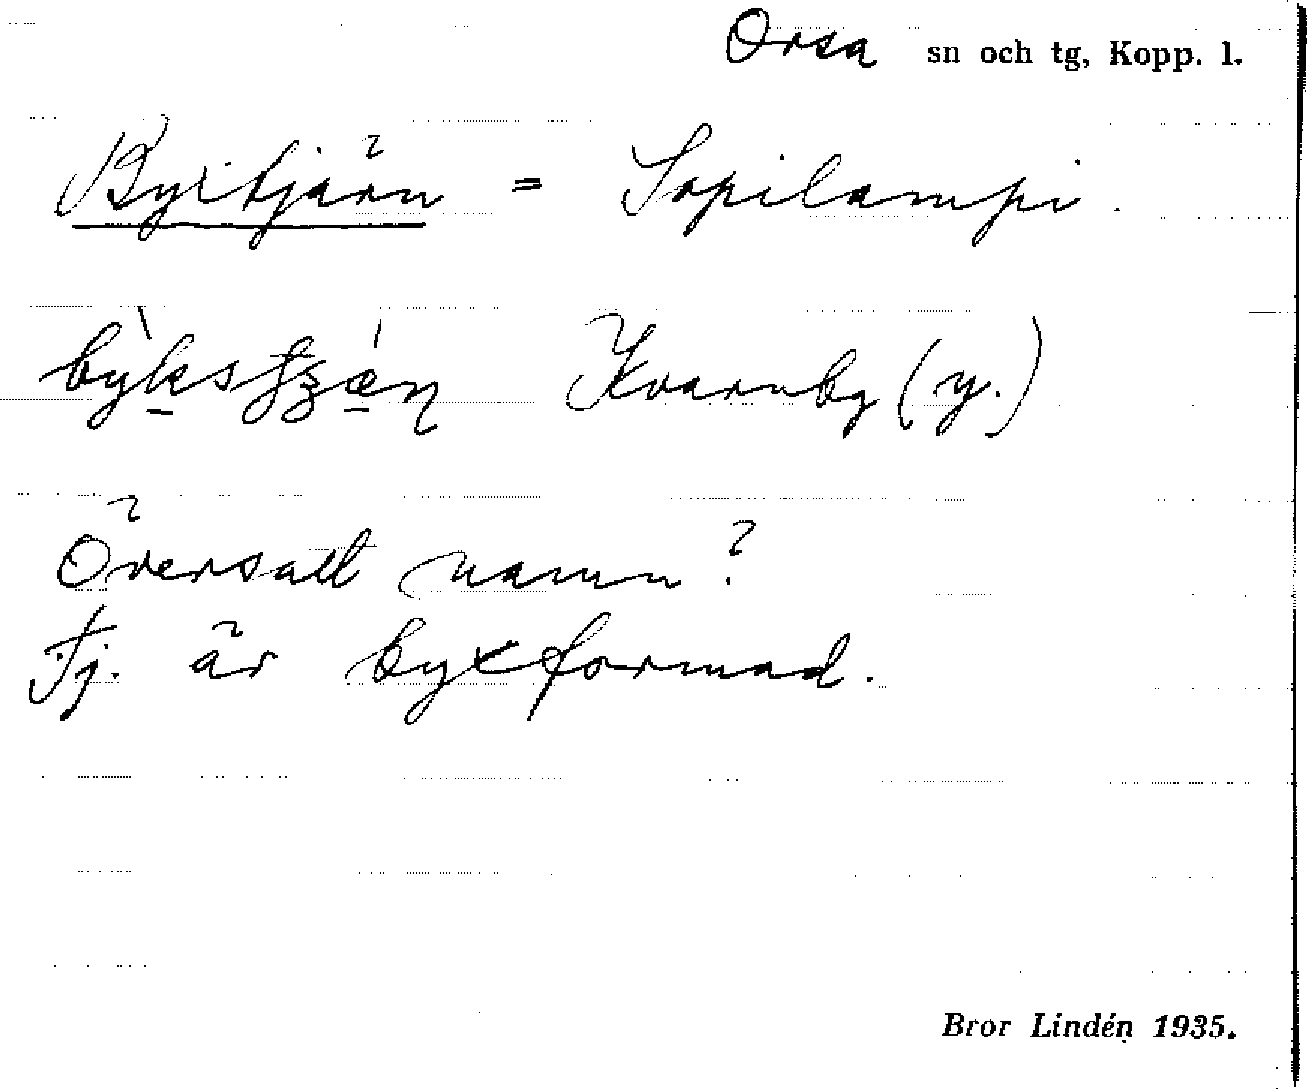 Orsa sn och tg, Kopp. l.
Byxtjärn = Sopilampi.
Kvarnby (y.)
Översatt namn?
Tj. är byxformad.
Bror Lindén 1935.